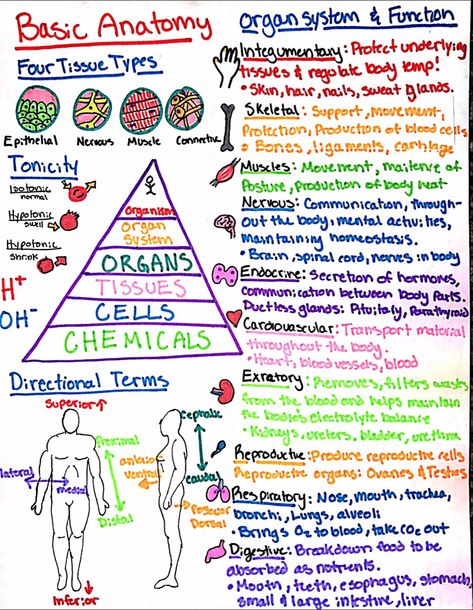 Basic Anatomy
Four Tissue Types
Epithelial
Nervous
Muscle
Connective
Tonicity
Isotonic
normal
Hypotonic
swell
Hypotonic
shrink
H+
OH-
Organism
Organ
System
ORGANS
TISSUES
CELLS
CHEMICALS
Directional Terms
Superior
Proximal
lateral
medial
Distal
Inferior
Cephalic
Ventral
caudal
Dorsal
Organ system & Function
Integumentary: Protect underlying
tissues & regulate body temp!
• Skin, hair, nails, sweat glands.
Skeletal: Support, movement,
Protection, Production of blood cells
• Bones, ligaments, cartilage
Muscles: Movement,
Posture, production of body heat
Nervous: Communication, through-
out the body, mental activities,
maintaining homeostasis.
• Brain, spinal cord, nerves in body
Endocrine: Secretion of hormones,
communication between body parts.
Ductless glands:
Cardiovascular: Transport material
throughout the body.
• Heart, blood vessels, blood
Removes, filters waste
from the blood and helps maintain
the bodies electrolyte balance
• Kidneys, ureters, bladder, urethra
Reproductive: Produce reproductive cells
Reproductive organs: Ovaries & Testies
Respiratory: Nose, mouth, trachea,
bronchi, Lungs, alveoli
• Brings O2 to blood, take CO2 out
Digestive: Breakdown food to be
absorbed as nutrients.
• Mouth, teeth, esophagus, stomach,
small & large intestine, liver